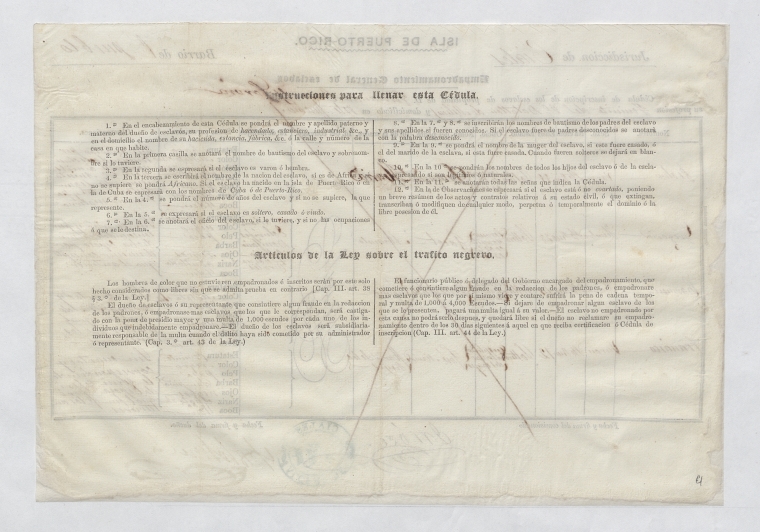 Instrucciones para llenar esta Cédula.
1.ª En el encabezamiento de esta Cédula se pondrá el nombre y apellido paterno y
materno del dueño de esclavos, su profesion de hacendado, estanciero, industrial &c., y
en el domicilio el nombre de su hacienda, estancia, fábrica, &c. ó la calle y número de la
casa en que habite.
2.ª En la primera casilla se anotará el nombre de bautismo del esclavo y sobrenom-
bre si lo tuviere.
3.ª En la segunda se espresará si el esclavo es varon ó hembra.
4.ª En la tercera se escribirá el nombre de la nacion del esclavo, si es de Africa
no se supiere se pondrá Africano. Si el esclavo ha nacido en la isla de Puerto-Rico ó en
la de Cuba se espresará con los nombres de Cuba ó de Puerto-Rico.
5.ª En la 4.ª se pondrá el número de años del esclavo y si no se supiere, la que
represente.
6.ª En la 5.ª se expresará si el esclavo es soltero, casado ó viudo.
7.ª En la 6.ª se anotará el oficio del esclavo, si lo tuviere, y si no las ocupaciones
á que se le destina.
8.ª En las 7.ª y 8.ª se inscribirán los nombres de bautismo de los padres del esclavo
y sus apellidos si fueren conocidos. Si el esclavo fuere de padres desconocidos se anotará
con la palabra desconocido.
9.ª En la 9.ª se pondrá el nombre de la muger del esclavo, si este fuere casado, ó
el del marido de la esclava, si esta fuere casada. Cuando fueren solteros se dejará en blan-
co.
10.ª En la 10.ª se pondrá el nombre de todos los hijos del esclavo ó de la escla-
va, espresando si son legítimos ó naturales.
11.ª En la 11.ª se anotarán todas las señas que indica la Cédula.
12.ª En la de Observaciones se espresará si el esclavo está ó no coartado, poniendo
un breve resúmen de los actos y contratos relativos á su estado civil, ó que extingan,
transcriban ó modifiquen de cualquier modo, perpetua ó temporalmente el dominio ó la
libre posesion de él.
Artículos de la Ley sobre el tráfico negrero.
Los hombres de color que no estuvieren empadronados ó inscritos serán por este solo
hecho considerados como libres sin que se admita prueba en contrario [Cap. III. art. 38
§ 3.º de la Ley.]
El dueño de esclavos ó su representante que consintiere algun fraude en la redaccion
de los padrones, ó empadronare mas esclavos que los que le correspondan, será castiga-
do con la pena de presidio mayor y una multa de 1.000 escudos por cada uno de los in-
dividuos que indebidamente empadronare.—El dueño de los esclavos será subsidiaria-
mente responsable de la multa cuando el delito haya sido cometido por su administrador
ó representante. (Cap. 3.º art. 43 de la Ley.)
El funcionario público ó delegado del Gobierno encargado del empadronamiento, que
cometiere ó consintiere algun fraude en la redaccion de los padrones, ó empadronare
mas esclavos que los que por sí mismo viere y contare, sufrirá la pena de cadena tempo-
ral y multa de 1,000 á 4,000 escudos.—Si dejare de empadronar algun esclavo de los
que se le presenten, pagará una multa igual á su valor.—El esclavo no empadronado por
esta causa no podrá serlo despues, y quedará libre si el dueño no reclamare su empadro-
namiento dentro de los 30 dias siguientes á aquel en que reciba certificacion ó Cédula de
inscripcion (Cap. III. art. 44 de la Ley.)